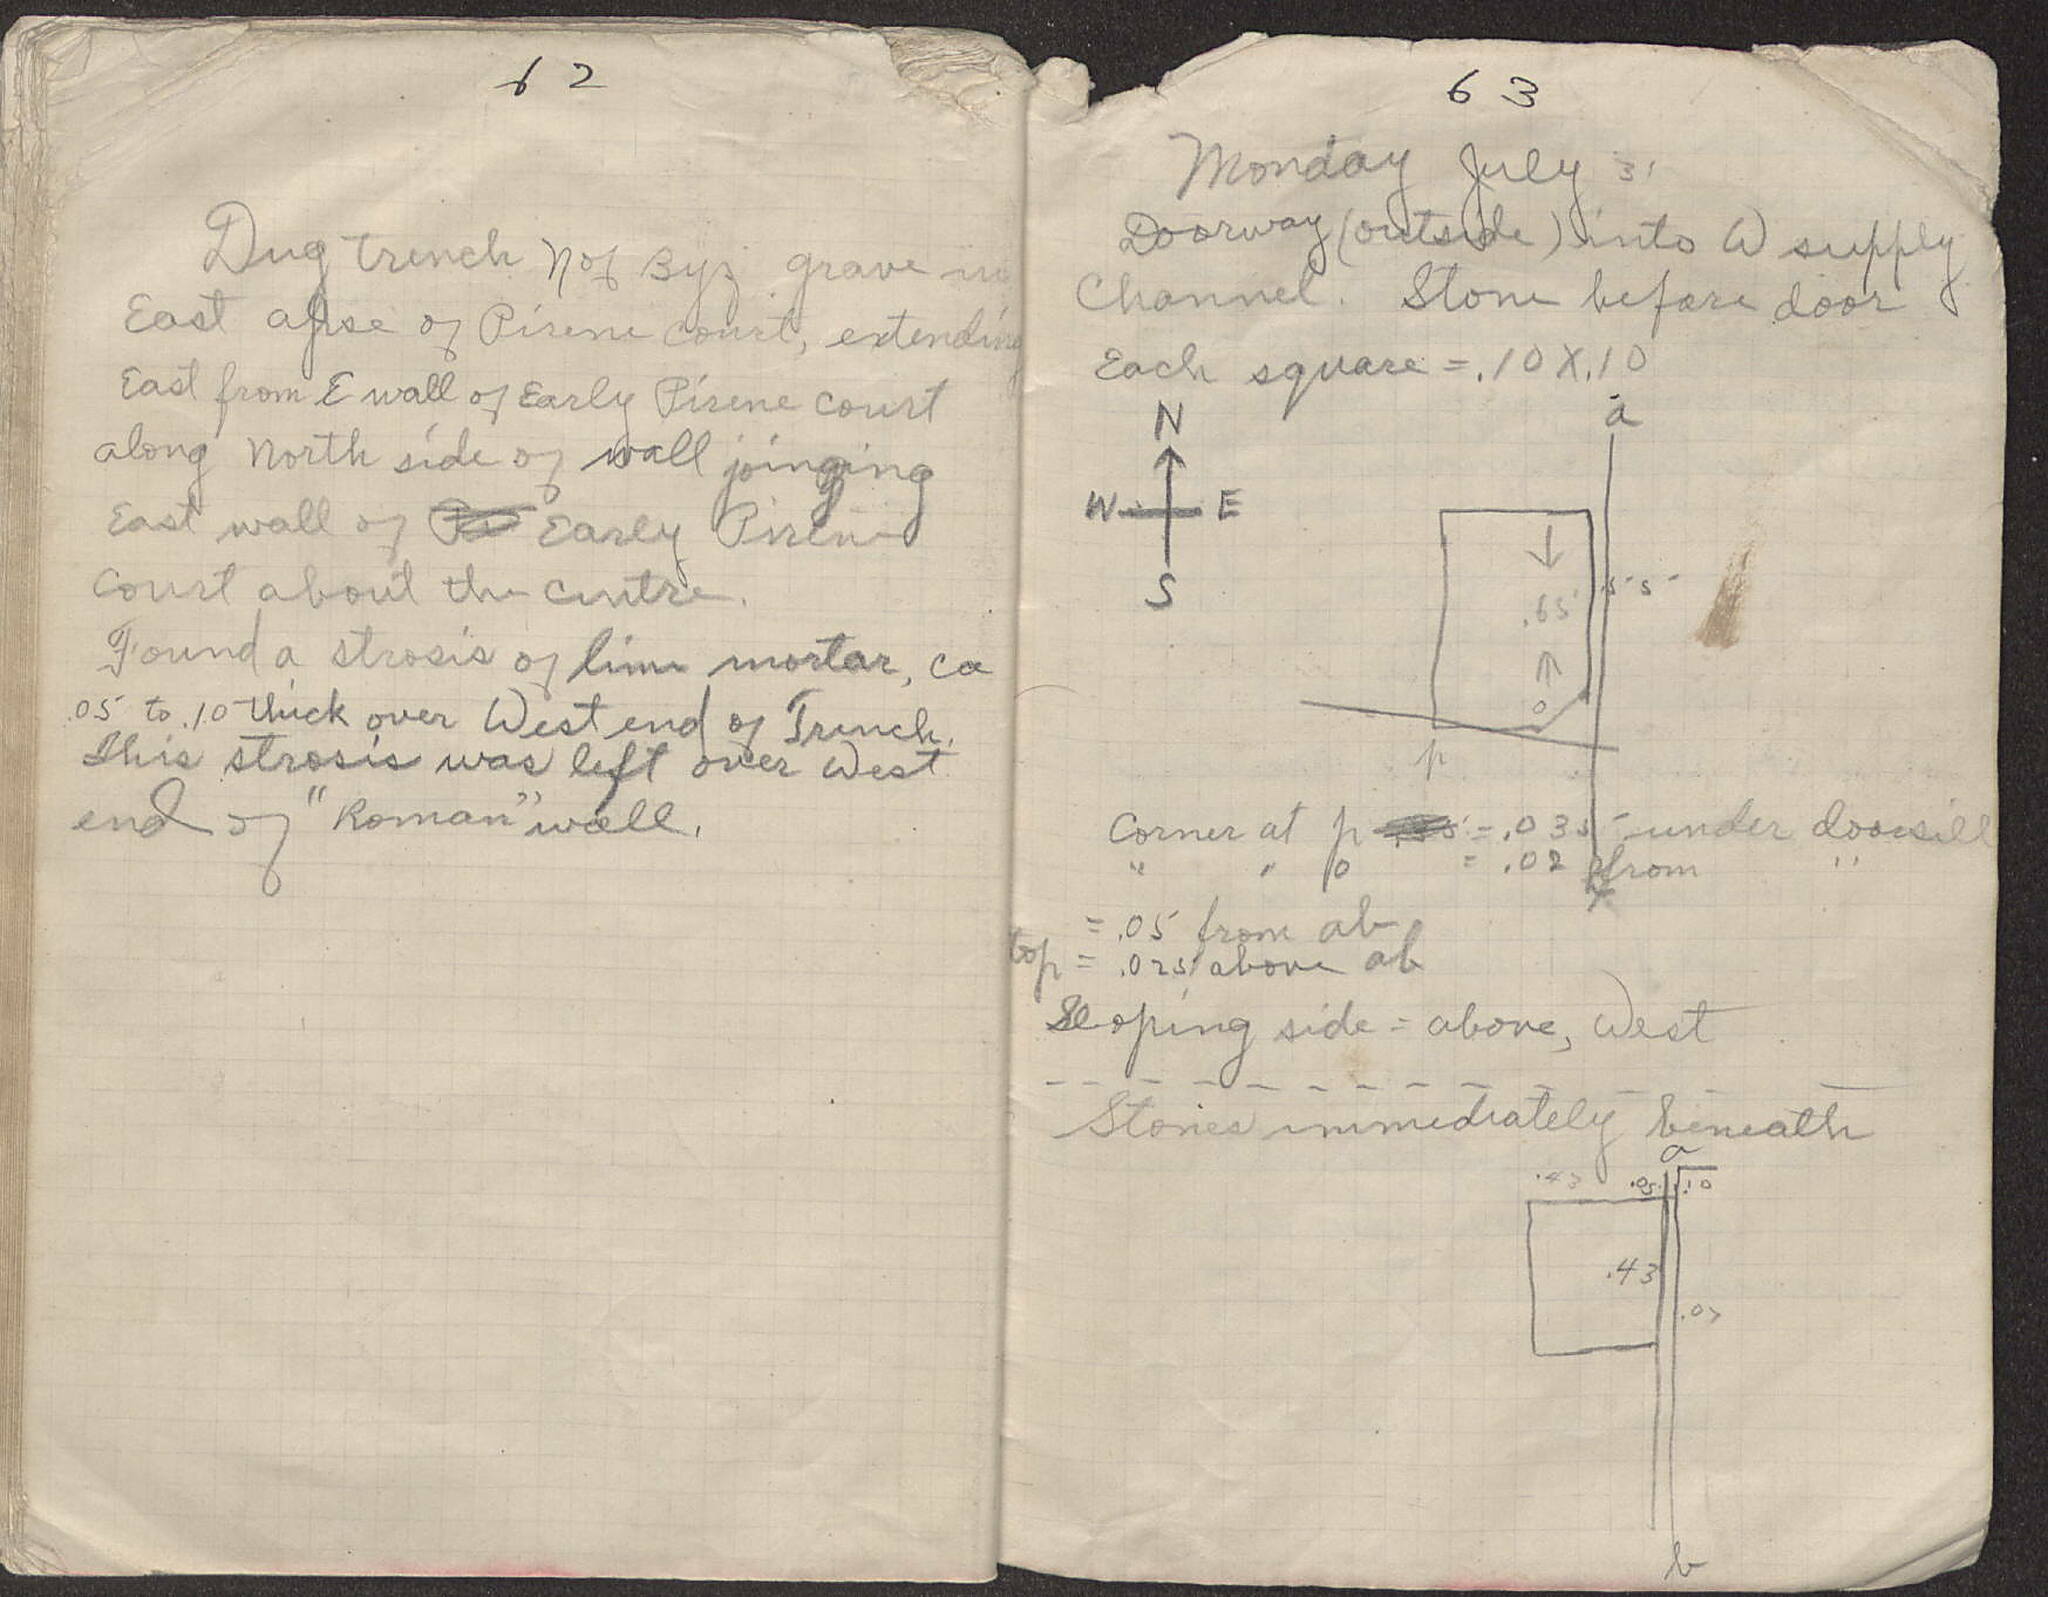 62
Dug trench N of Byz grave in
East apse of Pirene court, extending
East from E wall of Early Pirene court
along North side of wall joinging
East wall of Early Pirene
court about the centre.
Found a strosis of lime mortar, ca
.05 to .10 thick over West end of Trench.
This strosis was left over West
end of "Roman" wall.
63
Monday July 31
Doorway (outside) into W supply
Channel. Stone before door
Each square = .10 X .10
a
N
W E
S
.55
.65
o
p
Corner at p = .035 under doorsill
" " o = .02 from "
= .05 from ab
top = .025 above ab
Sloping side = above, West
Stones immediately beneath
a
.43 .05 .10
.43
.07
b